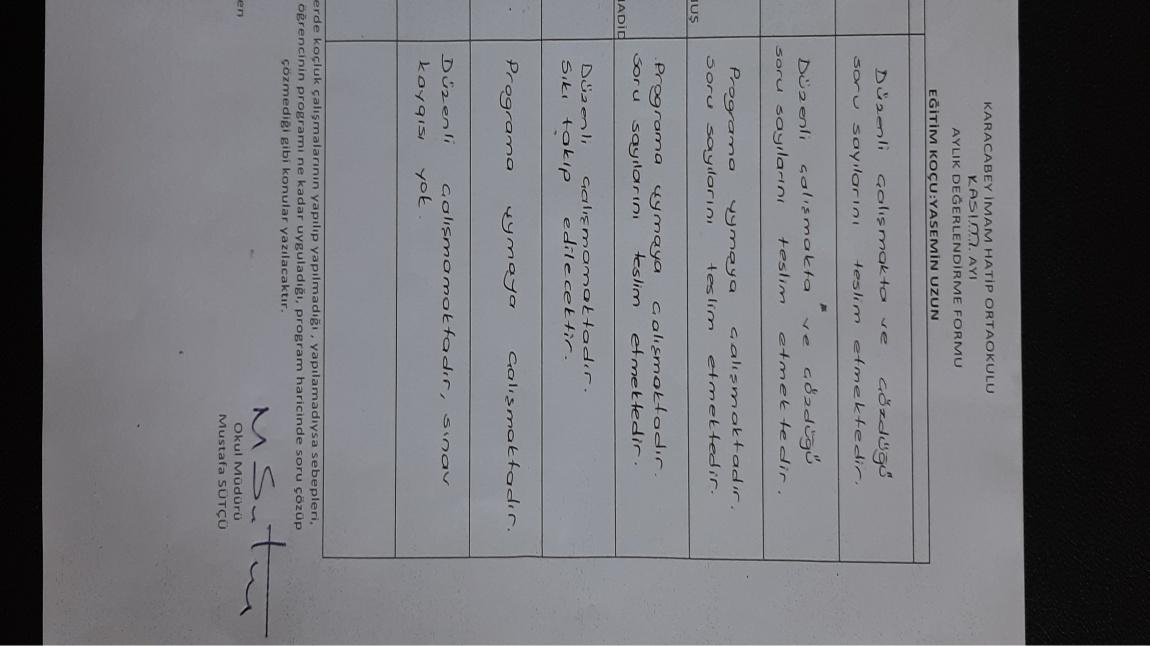 KARACABEY İMAM HATİP ORTAOKULU
KASIM AYI
AYLIK DEĞERLENDİRME FORMU
EĞİTİM KOÇU:YASEMİN UZUN
Düzenli çalışmakta ve çözdüğü
soru sayılarını teslim etmektedir.
Düzenli çalışmakta ve çözdüğü
soru sayılarını teslim etmektedir.
UŞ
Programa uymaya çalışmaktadır.
soru sayılarını teslim etmektedir.
Programa uymaya çalışmaktadır.
soru sayılarını teslim etmektedir.
Düzenli çalışmamaktadır.
Sıkı takip edilecektir.
Programa uymaya çalışmaktadır.
Düzenli çalışmamaktadır, sınav
kaygısı yok.
erde koçluk çalışmalarının yapılıp yapılmadığı , yapılamadıysa sebepleri,
öğrencinin programı ne kadar uyguladığı, program haricinde soru çözüp
çözmediği gibi konular yazılacaktır.
en
Okul Müdürü
Mustafa SÜTÇÜ